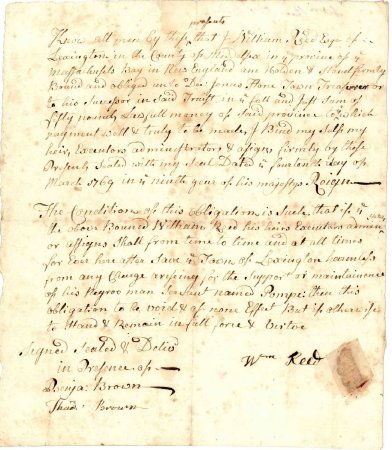 presents
Know all men by these that I William Reed Esqr of
Lexington in the County of Middlesex in ye province of ye
Massachusets Bay in New England am Holden & Stand firmly
Bound and obliged unto Den Jonas Stone Town Treasurer or
to his Successor in Said Trust in ye full and Just Sum of
fifty pounds Lawfull money of Said province to which
payment well & truly to be made, I Bind my Self my
heirs, Executors administrators & assigns firmly by these
Presents Sealed with my Seal Dated ye fourteenth Day of
March 1769 in ye ninth year of his majestys Reign
The Condition of this obligation is Such, that if ye
the above Bound William Reed his heirs Executors
or assigns Shall from time to time and at all times
for Ever here after Save ye Town of Lexington harmless
from any Charge arising for the Support or maintainence
of his Negroo man Servant named Pompe: then this
obligation to be void & of none Effect But if otherwise
to Stand & Remain in full force & Virtue
Signed Sealed & Delivd
in Presence of
Wm Reed
Benja: Brown
Thad: Brown